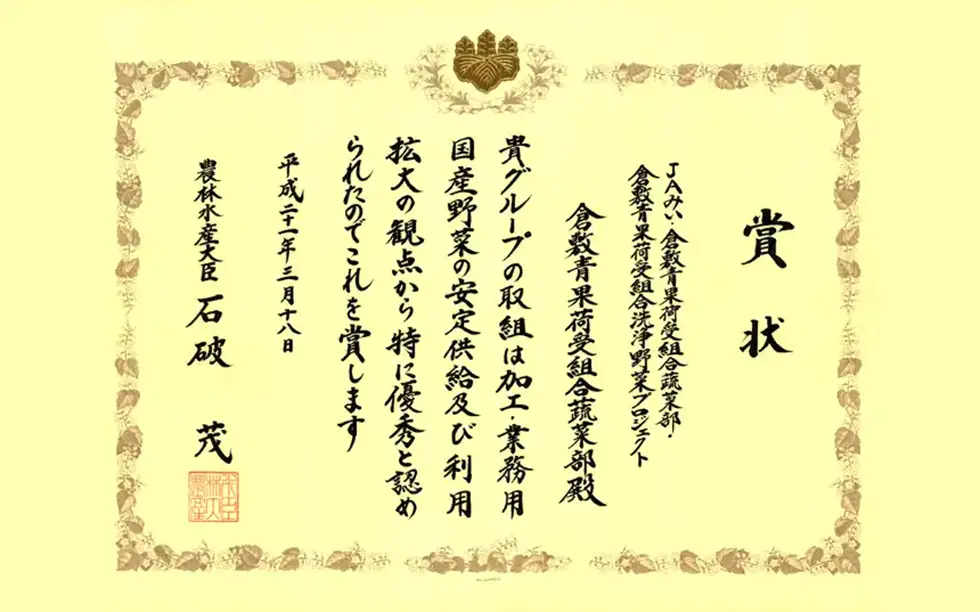 賞状
JAみい・倉敷青果荷受組合蔬菜部・
倉敷青果荷受組合洗浄野菜プロジェクト
倉敷青果荷受組合蔬菜部殿
貴グループの取組は加工・業務用
国産野菜の安定供給及び利用
拡大の観点から特に優秀と認め
られたのでこれを賞します
平成二十一年三月十八日
農林水産大臣 石破 茂